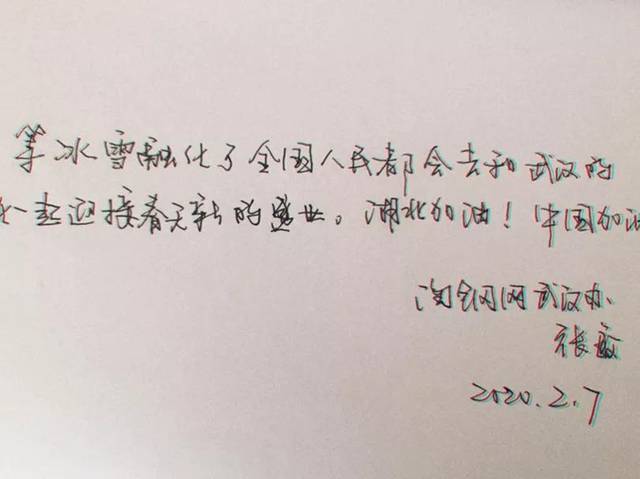 等冰雪融化了全国人民都会去和武汉的
一起迎接春天新的盛业。湖北加油!中国加油
淘钢网武汉办
张
2020.2.7